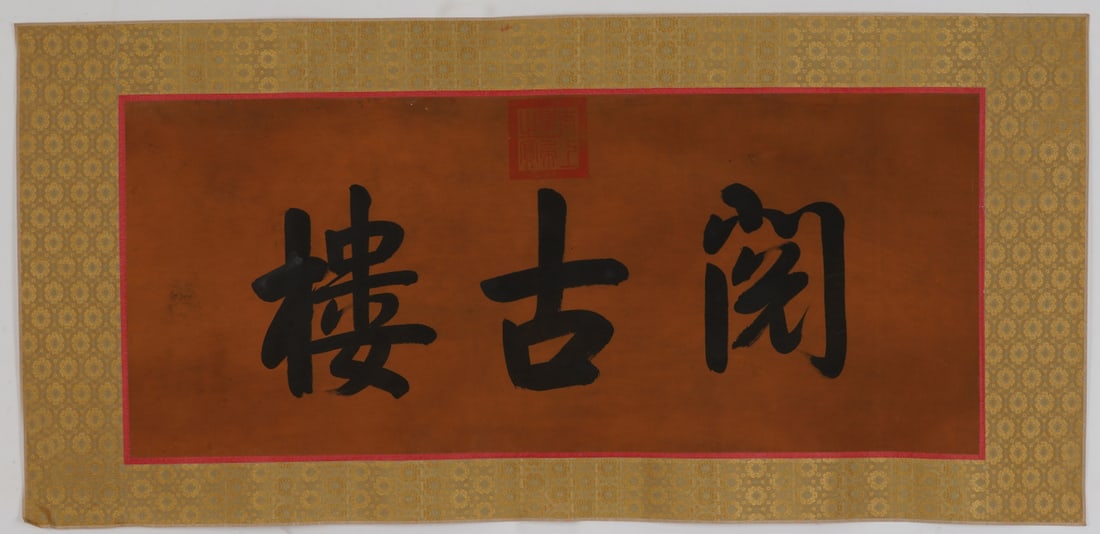 閱古樓